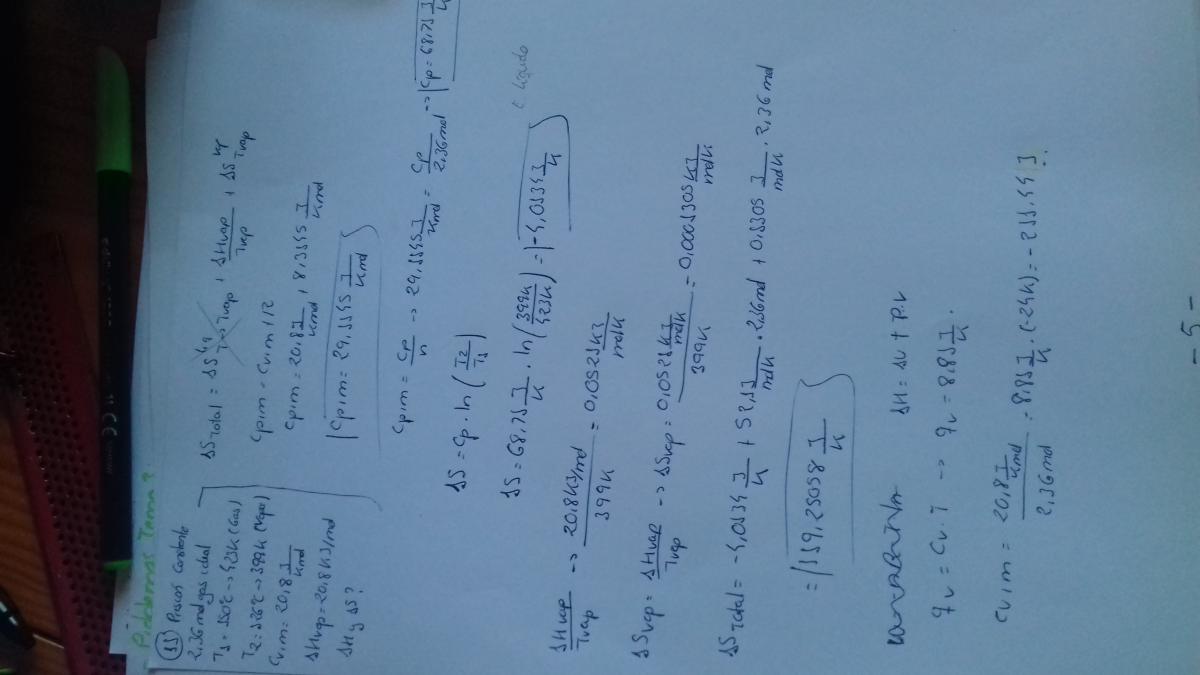 Problemas Tema 2
11) Presion Constante
2,36 mol gas ideal
T1 = 150ºC -> 423K (Gas)
T2 = 126ºC -> 399K (Vapor)
Cv,m = 20,8 J/Kmol
ΔHvap = 20,8 KJ/mol
ΔH y ΔS?
ΔSTotal = ΔS T->Tvap + ΔHvap/Tvap + ΔS Tvap
Cp,m = Cv,m + R
Cp,m = 20,8 J/Kmol + 8,3145 J/Kmol
Cp,m = 29,1145 J/Kmol
Cp,m = Cp/n -> 29,1145 J/Kmol = Cp/2,36mol -> Cp = 68,71 J
ΔS = Cp · ln (T2/T1)
ΔS = 68,71 J/K · ln (399K/423K) = -4,0134 J/K
líquido
ΔHvap/Tvap -> 20,8 KJ/mol / 399K = 0,0521 KJ/molK
ΔSvap = ΔHvap/Tvap -> ΔSvap = 0,0521 KJ/molK / 399K = 0,0001305 KJ/molK
ΔSTotal = -4,0134 J/K + 52,1 J/molK · 2,36mol + 0,1305 J/molK · 2,36 mol
= 119,25058 J/K
ΔH = ΔU + P.V
qv = Cv · T -> qv = 8,81 J/K ·
Cv,m = 20,8 J/Kmol / 2,36mol = 8,81 J/K · (-24K) = -211,44 J
- 5 -